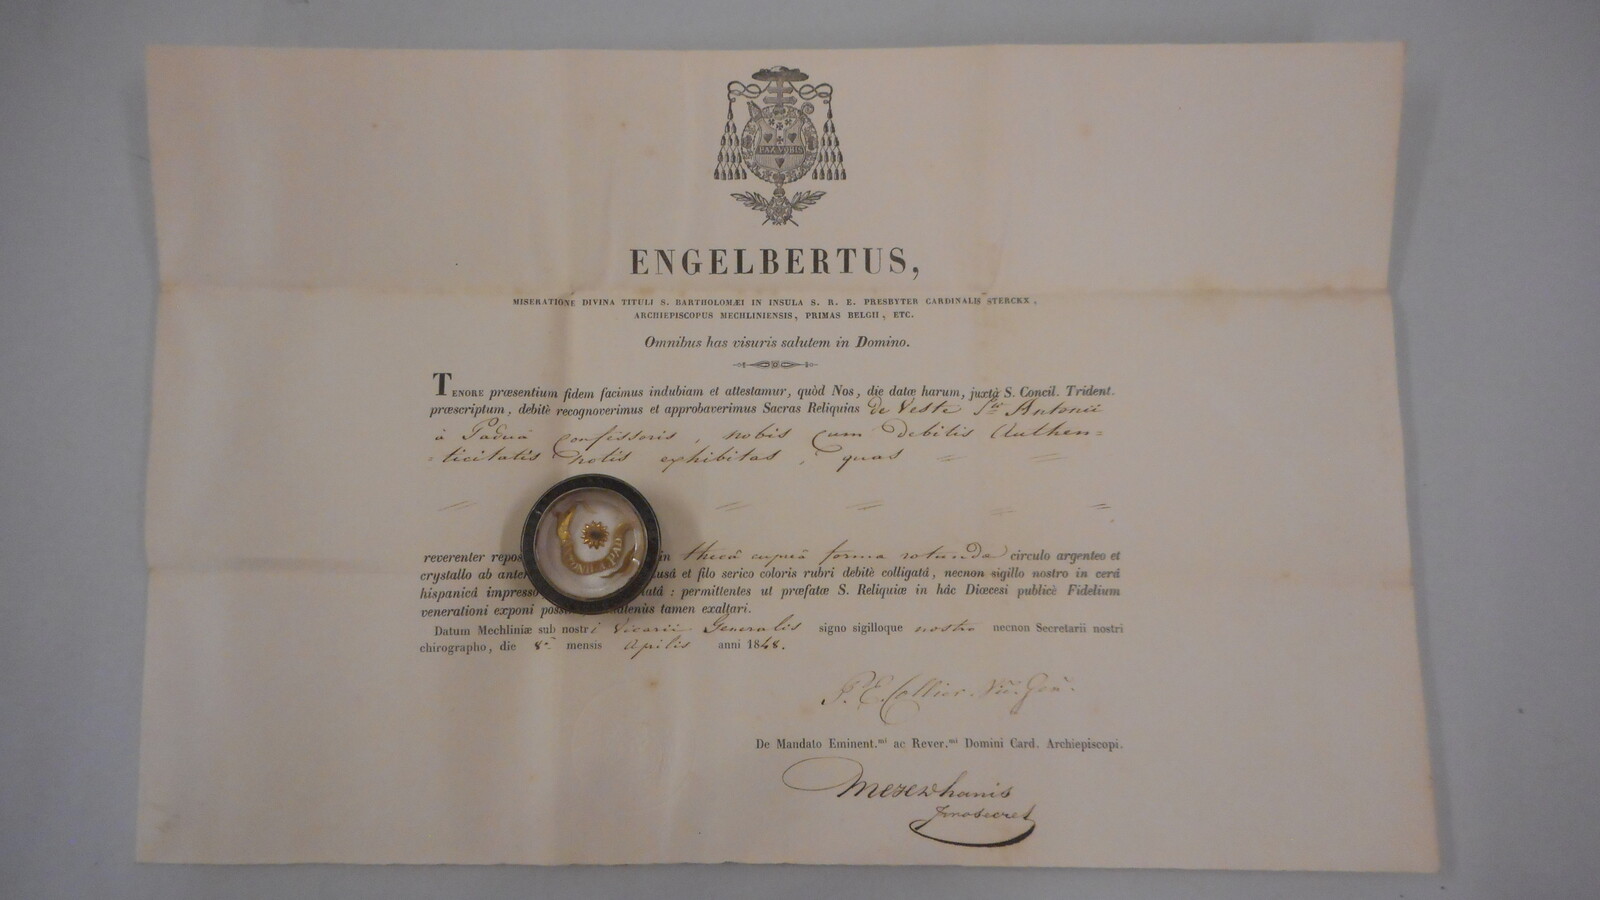 PAX VOBIS
ENGELBERTUS,
MISERATIONE DIVINA TITULI S. BARTHOLOMÆI IN INSULA S. R. E. PRESBYTER CARDINALIS STERCKX,
ARCHIEPISCOPUS MECHLINIENSIS, PRIMAS BELGII, ETC.
Omnibus has visuris salutem in Domino.
TENORE præsentium fidem facimus indubiam et attestamur, quòd Nos, die datæ harum, juxtà S. Concil. Trident.
præscriptum, debitè recognoverimus et approbaverimus Sacras Reliquias de Veste Sti Antonii
à Paduâ Confessoris, nobis cum debitis Authen=
=ticitatis notis exhibitas, quas
reverenter repos in thecâ cupreâ forma rotunda circulo argenteo et
crystallo ab anter usâ et filo serico coloris rubri debitè colligatâ, necnon sigillo nostro in cerâ
hispanicâ impresso atâ : permittentes ut præfatæ S. Reliquiæ in hâc Diœcesi publicè Fidelium
venerationi exponi poss atenùs tamen exaltari.
Datum Mechliniæ sub nostri Vicarii Generalis signo sigilloque nostro necnon Secretarii nostri
chirographo, die 8a mensis Aprilis anni 1848.
De Mandato Eminent.mi ac Rever.mi Domini Card. Archiepiscopi.
prosecret